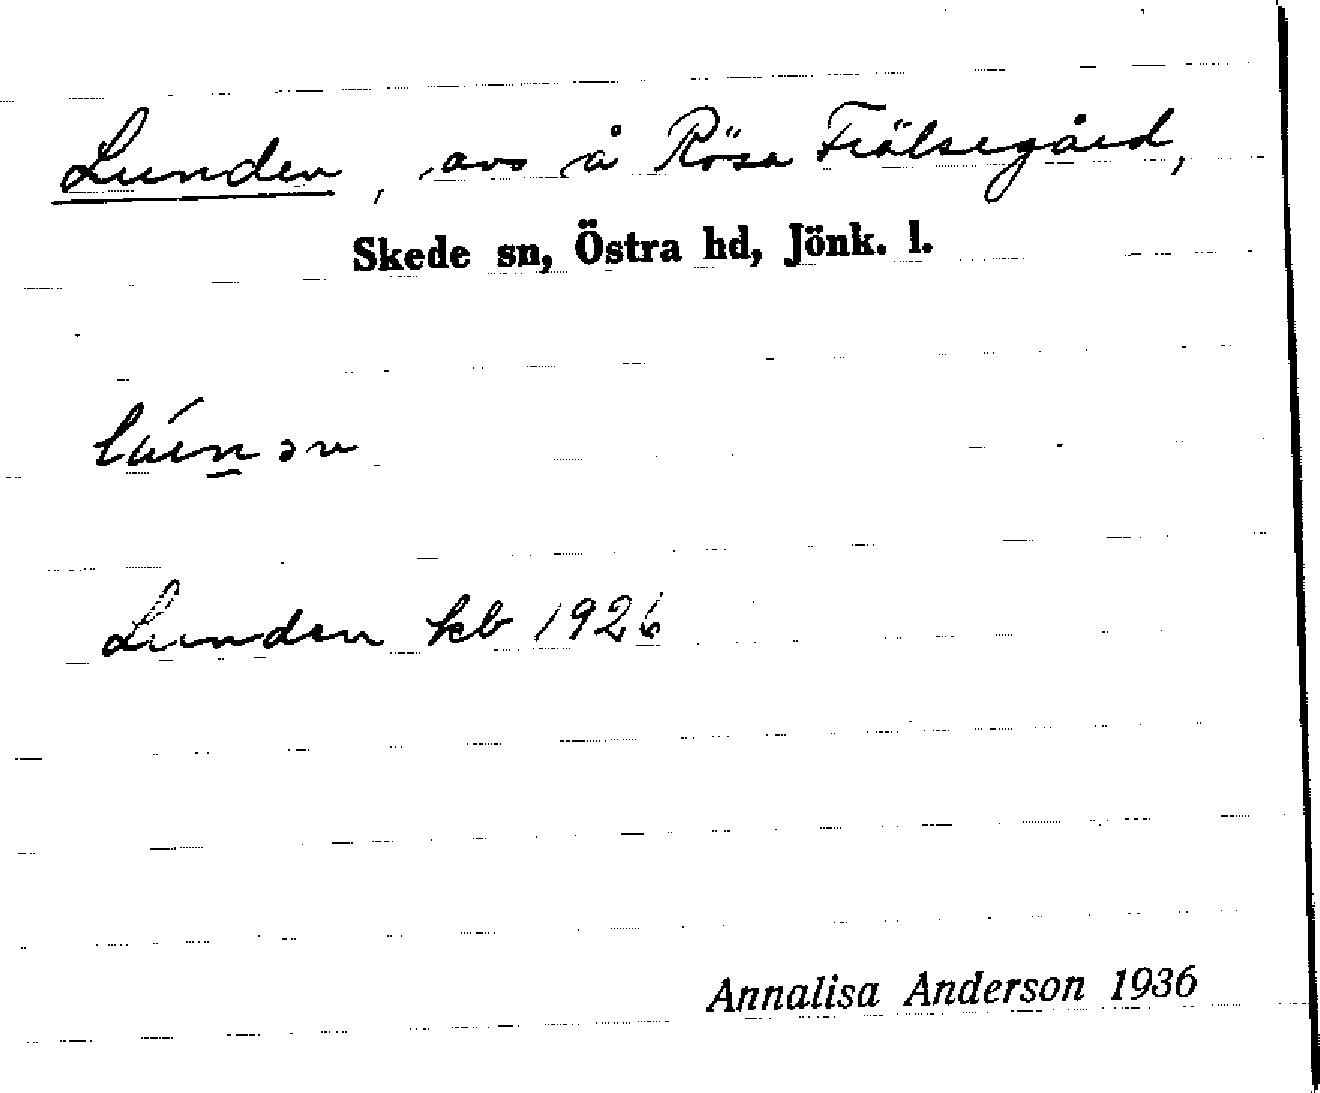 Lunden, avs å Rösa Frälsegård,
Skede sn, Östra hd, Jönk. l.
Lunden kb 1926
Annalisa Anderson 1936